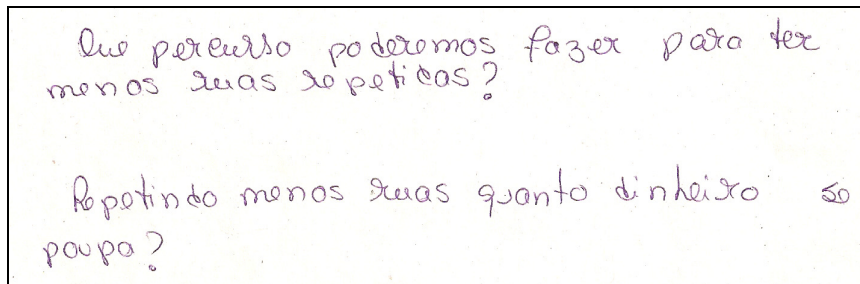 Que percurso poderemos fazer para ter
menos ruas repetidas?
Repetindo menos ruas quanto dinheiro se
poupa?